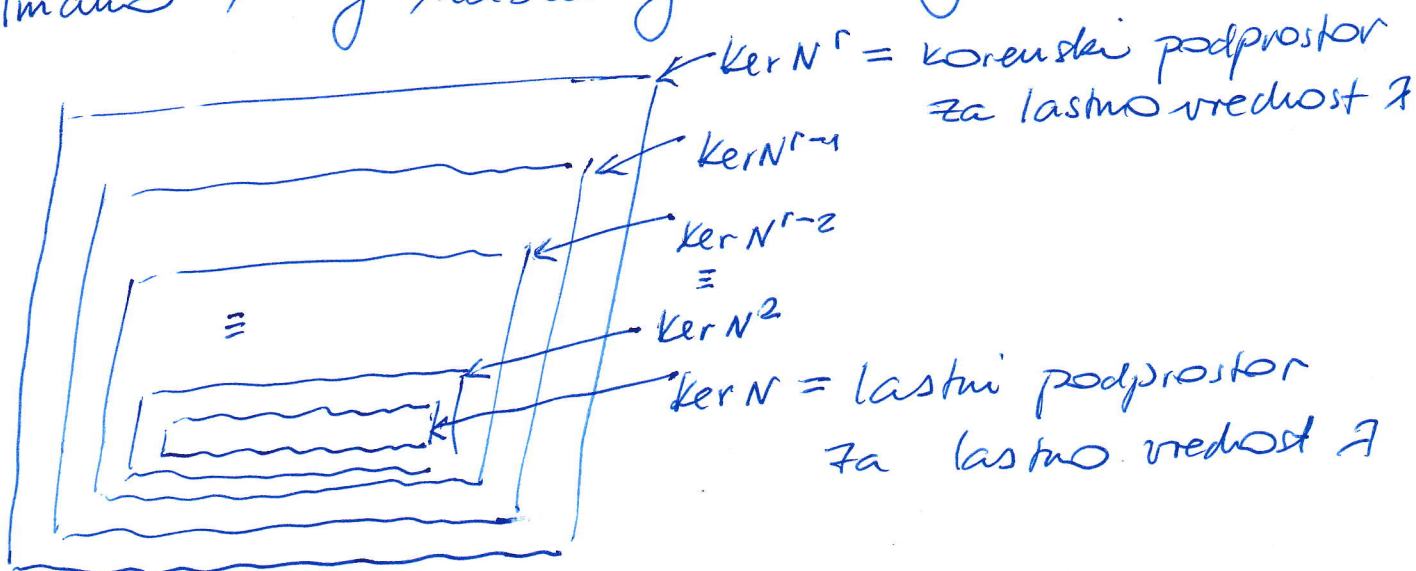 Ker N^r = korenski podprostor
za lastno vrednost λ
Ker N^{r-1}
Ker N^{r-2}
Ker N^2
Ker N = lastni podprostor
za lastno vrednost λ